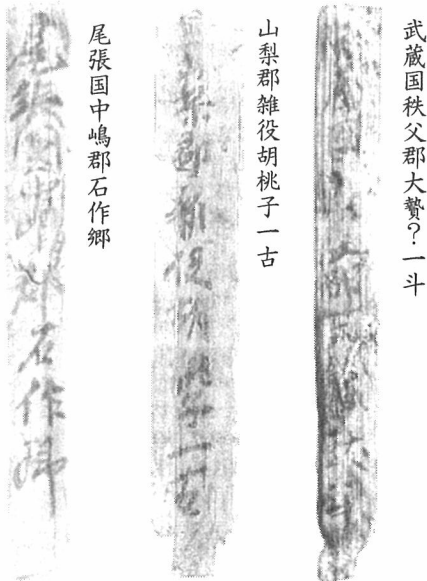 武蔵国秩父郡大贄？一斗
山梨郡雑役胡桃子一古
尾張国中嶋郡石作郷